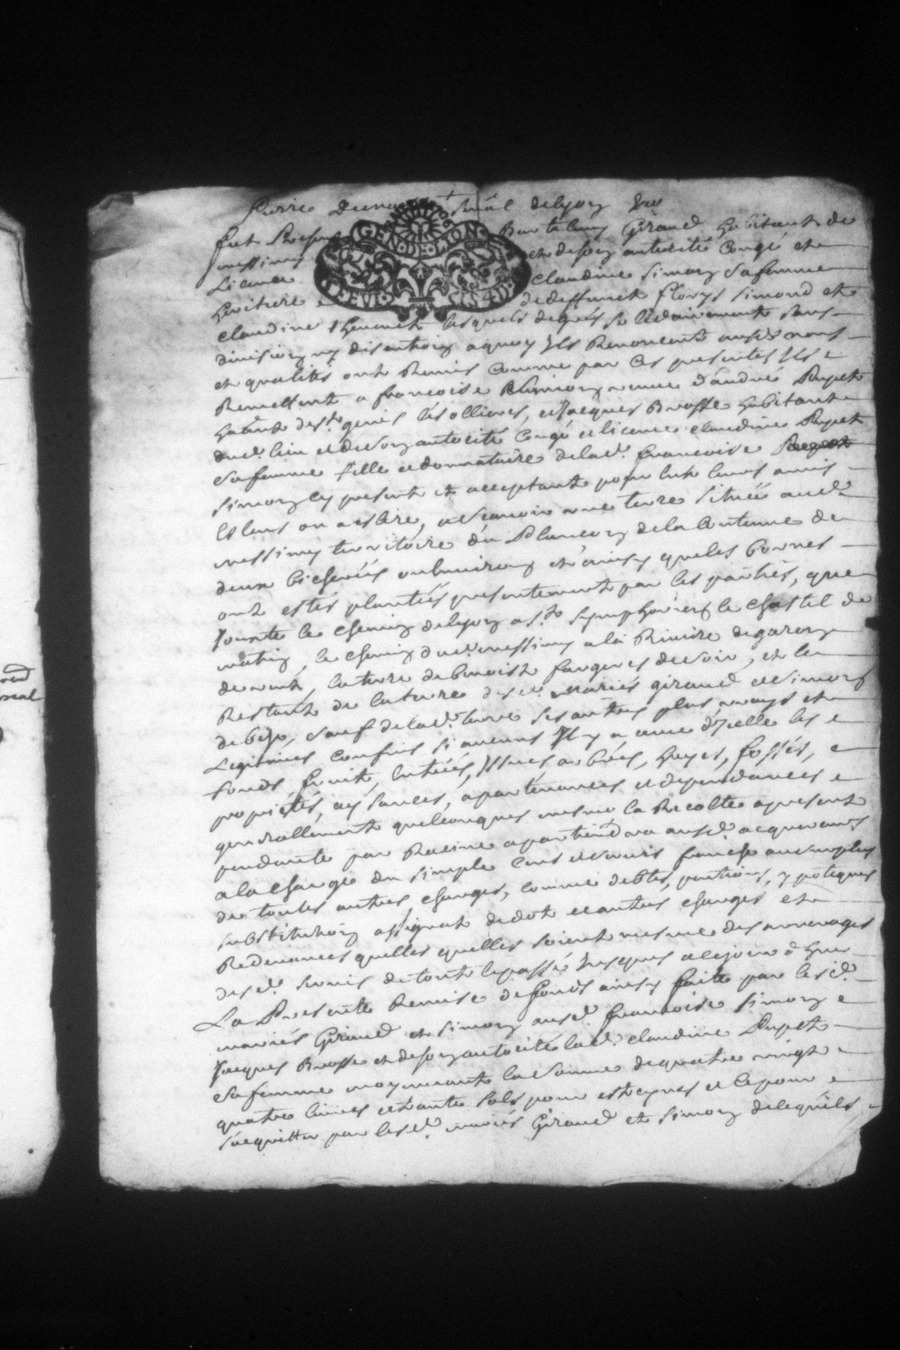 Pierre Senal de lyon
fut Present Bartelemy Giraud habitant de
messimy et de son autorité Congé et
Licence claudine simon sa femme
heritiere de deffunct florys simond et
claudine thevenet lesquels de gres sollidairement sans
division ny discution a quoy Ils Renoncent ausd noms
et qualités ont Remis Comme par Ces presentes Ils
Remettent a francoise simon veufve d'andré Pupet
hābnte de st genis les ollieres, et Jacques Brosse habitant
dud. lieu et de son autorité Congé et licence claudine Pupet
sa femme fille et donnataire de lad. francoise
simon Cy presents et acceptants pour Eux leurs amis
Esleus ou a eslire, a scavoir une terre située aud.
messimy territoire du Plancon de la Contenue de
deux bicherées ou Environ et ainsy que les bornes
ont estés plantées presentement par les parties, que
Jouxte le chemin de lyon a st symphorien le chastel de
matin, le chemin dud. messimy a la Riviere de garon
de vent, la terre de benoist fangeres de soir, et le
Restant de la terre desd. mariés giraud et simon
de bize, sauf de lad. terre ses autres plus vrays et
Legitimes Confins si aucuns Il y a avec d'Icelle les
fonds, fruits, Entrées, Issues arbres, hayes, fossés,
proprietés, aysances, apartenances et dependances
generallement quelconques mesme la Recolte a present
pendante par Racine apartiendra ausd. acquereurs
a la charge du simple Cens et servis franche au surplus
de toutes autres charges, comme debtes, pentions, ypoteques
substitution assignat de dot et autres charges et
Redevances quelles quelles soient mesme des arrerages
desd. servis de tout le passé Jusques a ce jour d'huy
La Presente Remise de fonds ainsy faite par lesd.
mariés Giraud et simon ausd. francoise simon
Jacques Brosse et de son autorité lad. claudine Pupet
sa femme moyennant la somme de quatre vingt
quatre livres et trante sols pour estreynes et le pour
s'acquitter par lesd. mariés Giraud et simon de lequels
GEN DE LION